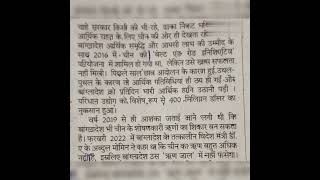 चाहे सरकार किसी की भी रहे, ढाका निकट भवि
आर्थिक राहत के लिए चीन की ओर ही देखता रहे
बांग्लादेश आर्थिक समृद्धि और आपसी लाभ की उम्मीद के
साथ 2016 में चीन की 'बेल्ट एंड रोड इनिशिएटिव'
परियोजना में शामिल हो गया था, लेकिन उसे खास सफलता
नहीं मिली। पिछले साल छात्र आन्दोलन के कारण हुई उथल-
पुथल के कारण ये आर्थिक गतिविधियां ही ठप हो गई और
बांग्लादेश को प्रतिदिन भारी आर्थिक हानि उठानी पड़ी ।
परिधान उद्योग को, विशेष रूप से 400 मिलियन डॉलर का
नुकसान हुआ।
वर्ष 2019 से ही आशंका जताई जाने लगी थी कि
बांग्लादेश भी चीन के शोषणकारी ऋणों का शिकार बन सकता
है। फरवरी 2022 में बांग्लादेश के तत्कालीन विदेश मंत्री डॉ.
ए के अब्दुल मोमिन ने कहा था कि चीन का ऋण बहुत अधिक
नहीं है, इसलिए बांग्लादेश उस 'ऋण जाल' में नहीं फंसेगा।